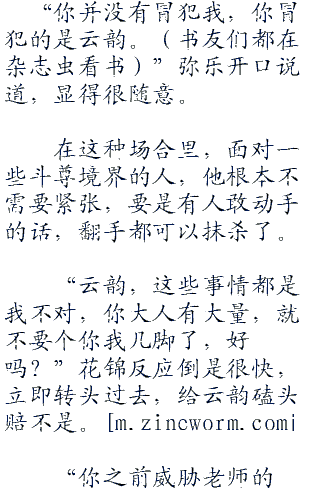 “你并没有冒犯我，你冒
犯的是云韵。（书友们都在
杂志虫看书）”弥乐开口说
道，显得很随意。
在这种场合里，面对一
些斗尊境界的人，他根本不
需要紧张，要是有人敢动手
的话，翻手都可以抹杀了。
“云韵，这些事情都是
我不对，你大人有大量，就
不要个你我几脚了，好
吗？”花锦反应倒是很快，
立即转头过去，给云韵磕头
赔不是。[m.zincworm.com]
“你之前威胁老师的